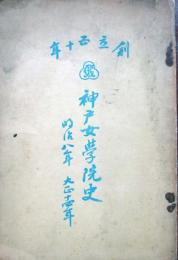 創立五十年
神戸女學院史
明治八年 大正十四年